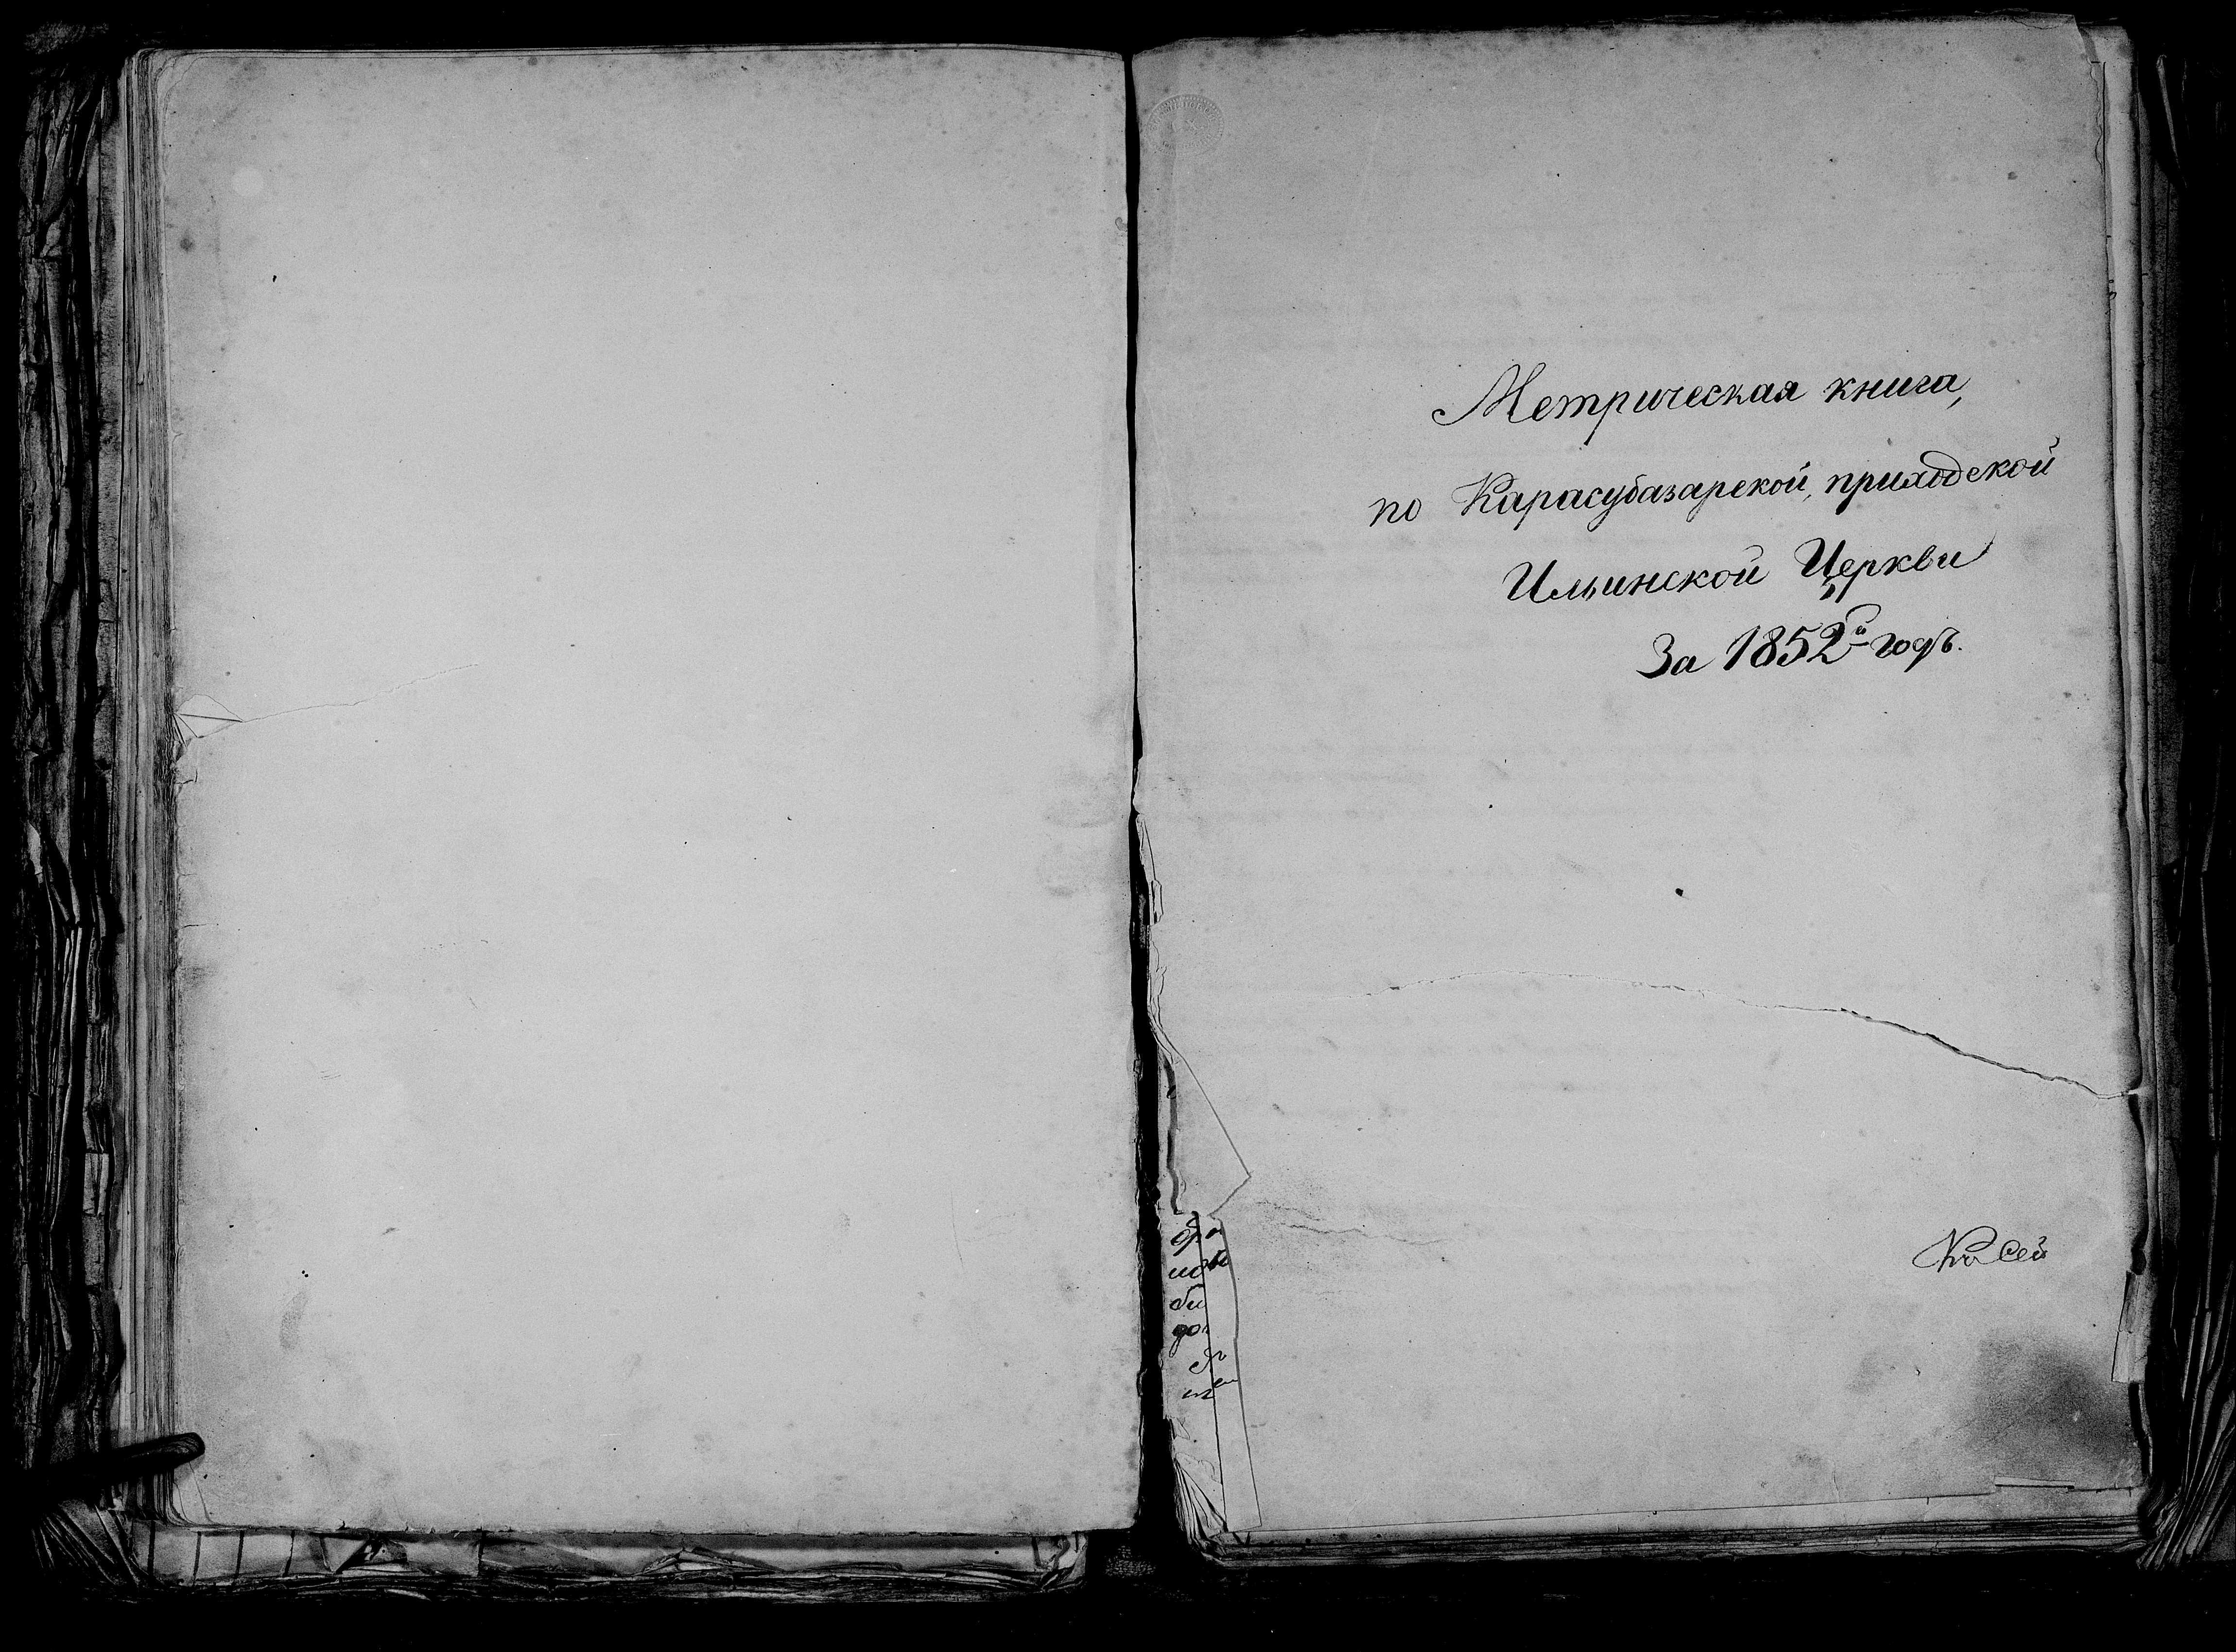 Метрическая книга,
по Карасубазарской, приходской
Ильинской Церкви
За 1852й годъ.
Къ сей